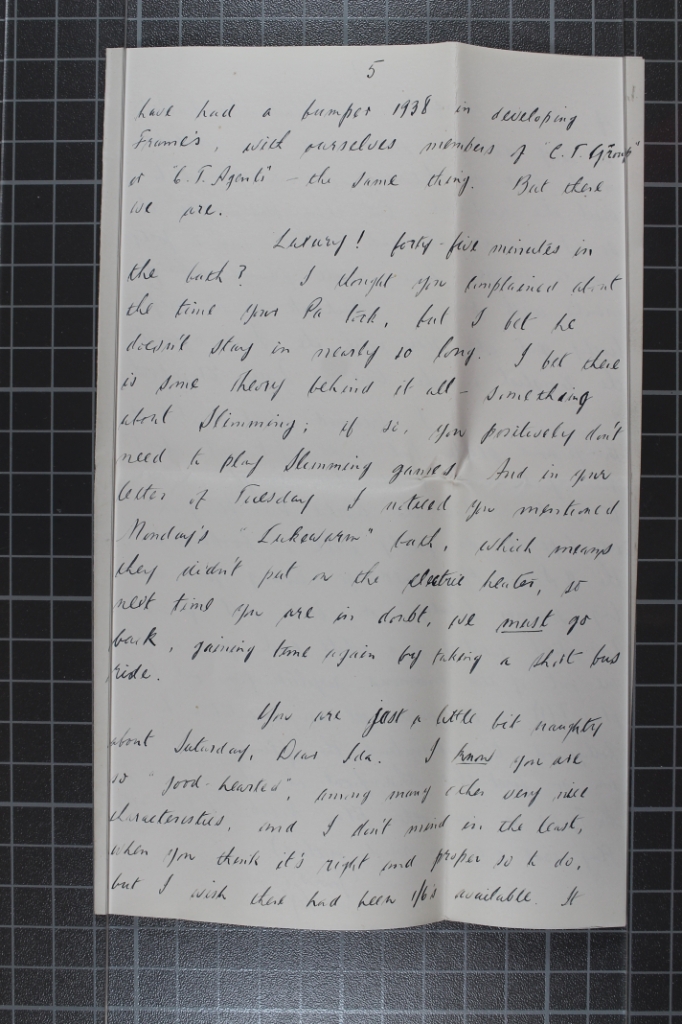 5
have had a bumper 1938 in developing
Frame's, with ourselves members of "C.T. Group"
or "C.T. Agents" – the same thing. But there
we are.
Luxury! forty-five minutes in
the bath? I thought you complained about
the time your Pa took, but I bet he
doesn't stay in nearly so long. I bet there
is some theory behind it all – something
about Slimming; if so, you positively don't
need to play Slimming games! And in your
letter of Tuesday I noticed you mentioned
Monday's "Lukewarm" bath, which means
they didn't put on the electric heater, so
next time you are in doubt, we must go
back, gaining time again by taking a short bus
ride.
You are just a little bit naughty
about Saturday, Dear Ida. I know you are
so "good-hearted", among many other very nice
characteristics, and I don't mind in the least,
when you think it's right and proper so to do,
but I wish there had been 1/6's available. It